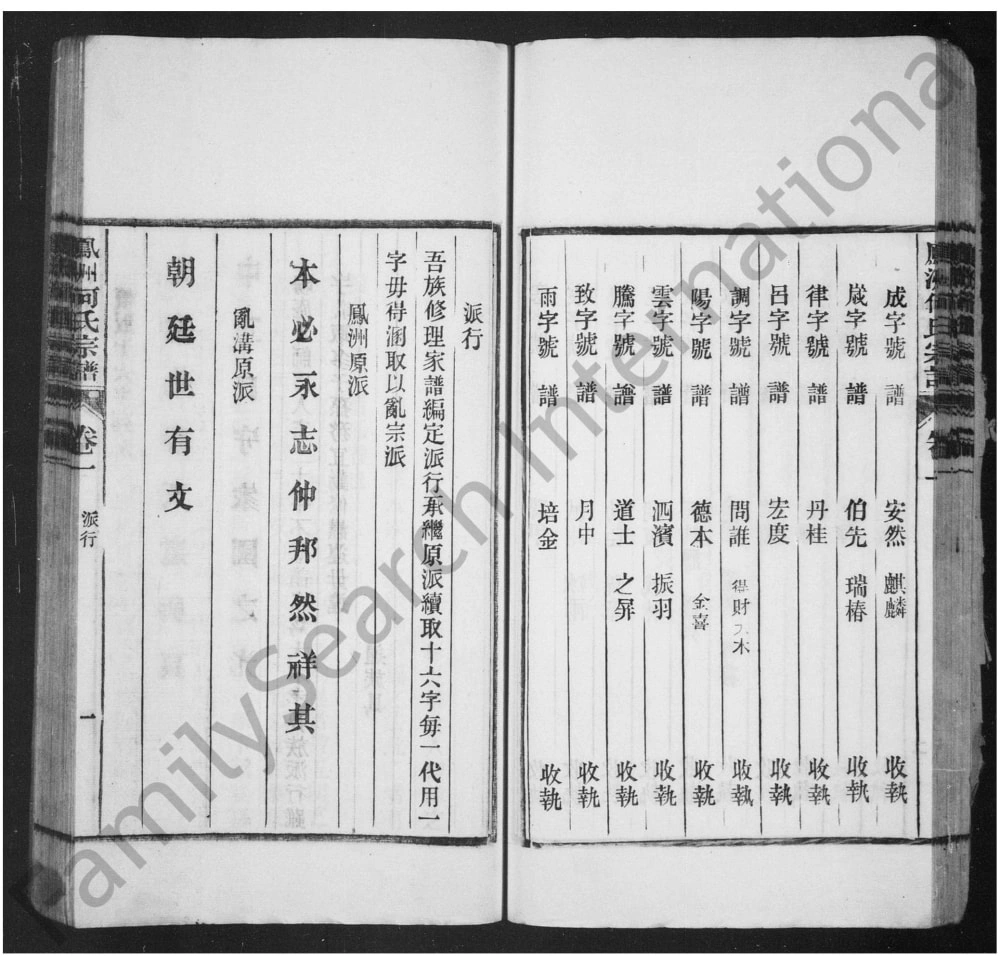 成字號 譜 安然 麒麟 收執
嵗字號 譜 伯先 瑞椿 收執
律字號 譜 丹桂 收執
呂字號 譜 宏度 收執
調字號 譜 問誰 得財 木 收執
陽字號 譜 德本 金喜 收執
雲字號 譜 泗濱 振羽 收執
騰字號 譜 道士 之屏 收執
致字號 譜 月中 收執
雨字號 譜 培金 收執
派行
吾族修理家譜編定派行承繼原派續取十六字每一代用一
字毋得溷取以亂宗派
鳳洲原派
本必永志仲邦然祥其
亂溝原派
朝廷世有文
鳳州何氏宗譜 卷一 派行 一
FamilySearch International